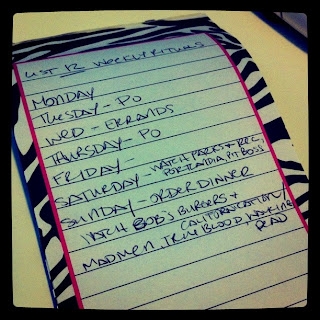 LIST 12 WEEKLY RITUALS
MONDAY
TUESDAY - PO
WED - ERRANDS
THURSDAY - PO
FRIDAY -
SATURDAY - WATCH PARKS & REC,
PORTLANDIA, PIT BOSS
SUNDAY - ORDER DINNER
WATCH BOB'S BURGERS +
CALIFORNICATION/
MADMEN, TRUE BLOOD, WALKING
DEAD